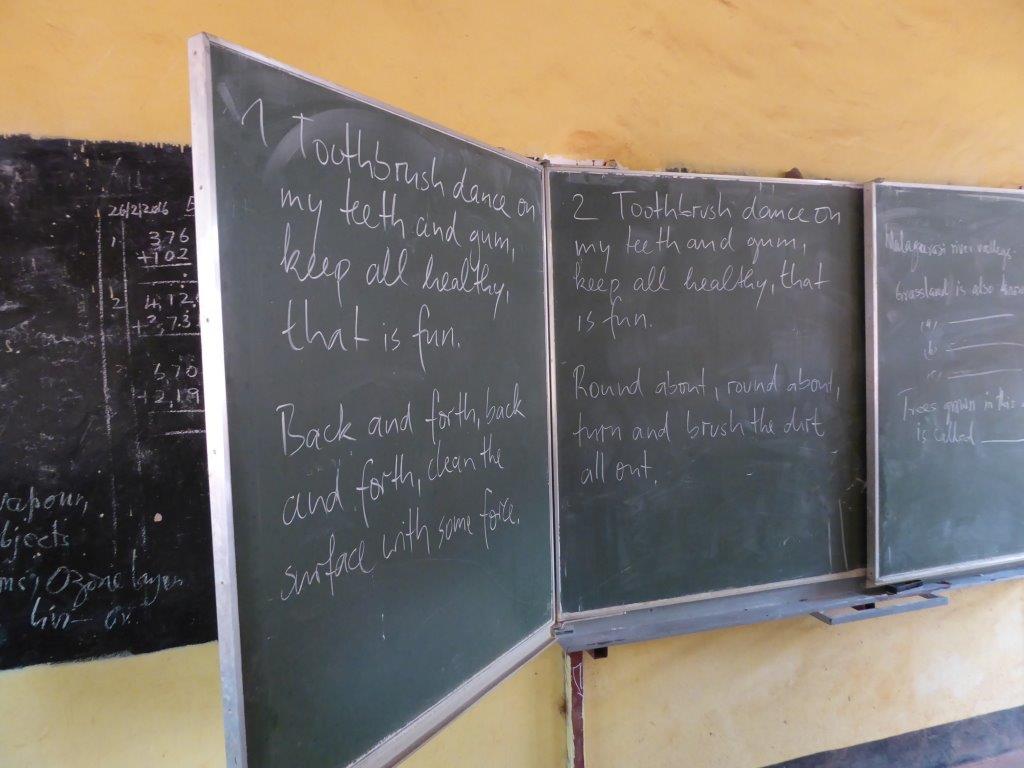 26/2/2016
1
376
+102
2
4,12
+3,73
6,70
+2,19
vapour,
bjects
Ozone layer
1 Toothbrush dance on
my teeth and gum,
keep all healthy,
that is fun.
Back and forth, back
and forth, clean the
surface with some force.
2 Toothbrush dance on
my teeth and gum,
keep all healthy, that
is fun.
Round about, round about,
turn and brush the dirt
all out.
Malagarasi river valleys
Grassland is also
(a)
(b)
(c)
Trees grown in this
is called